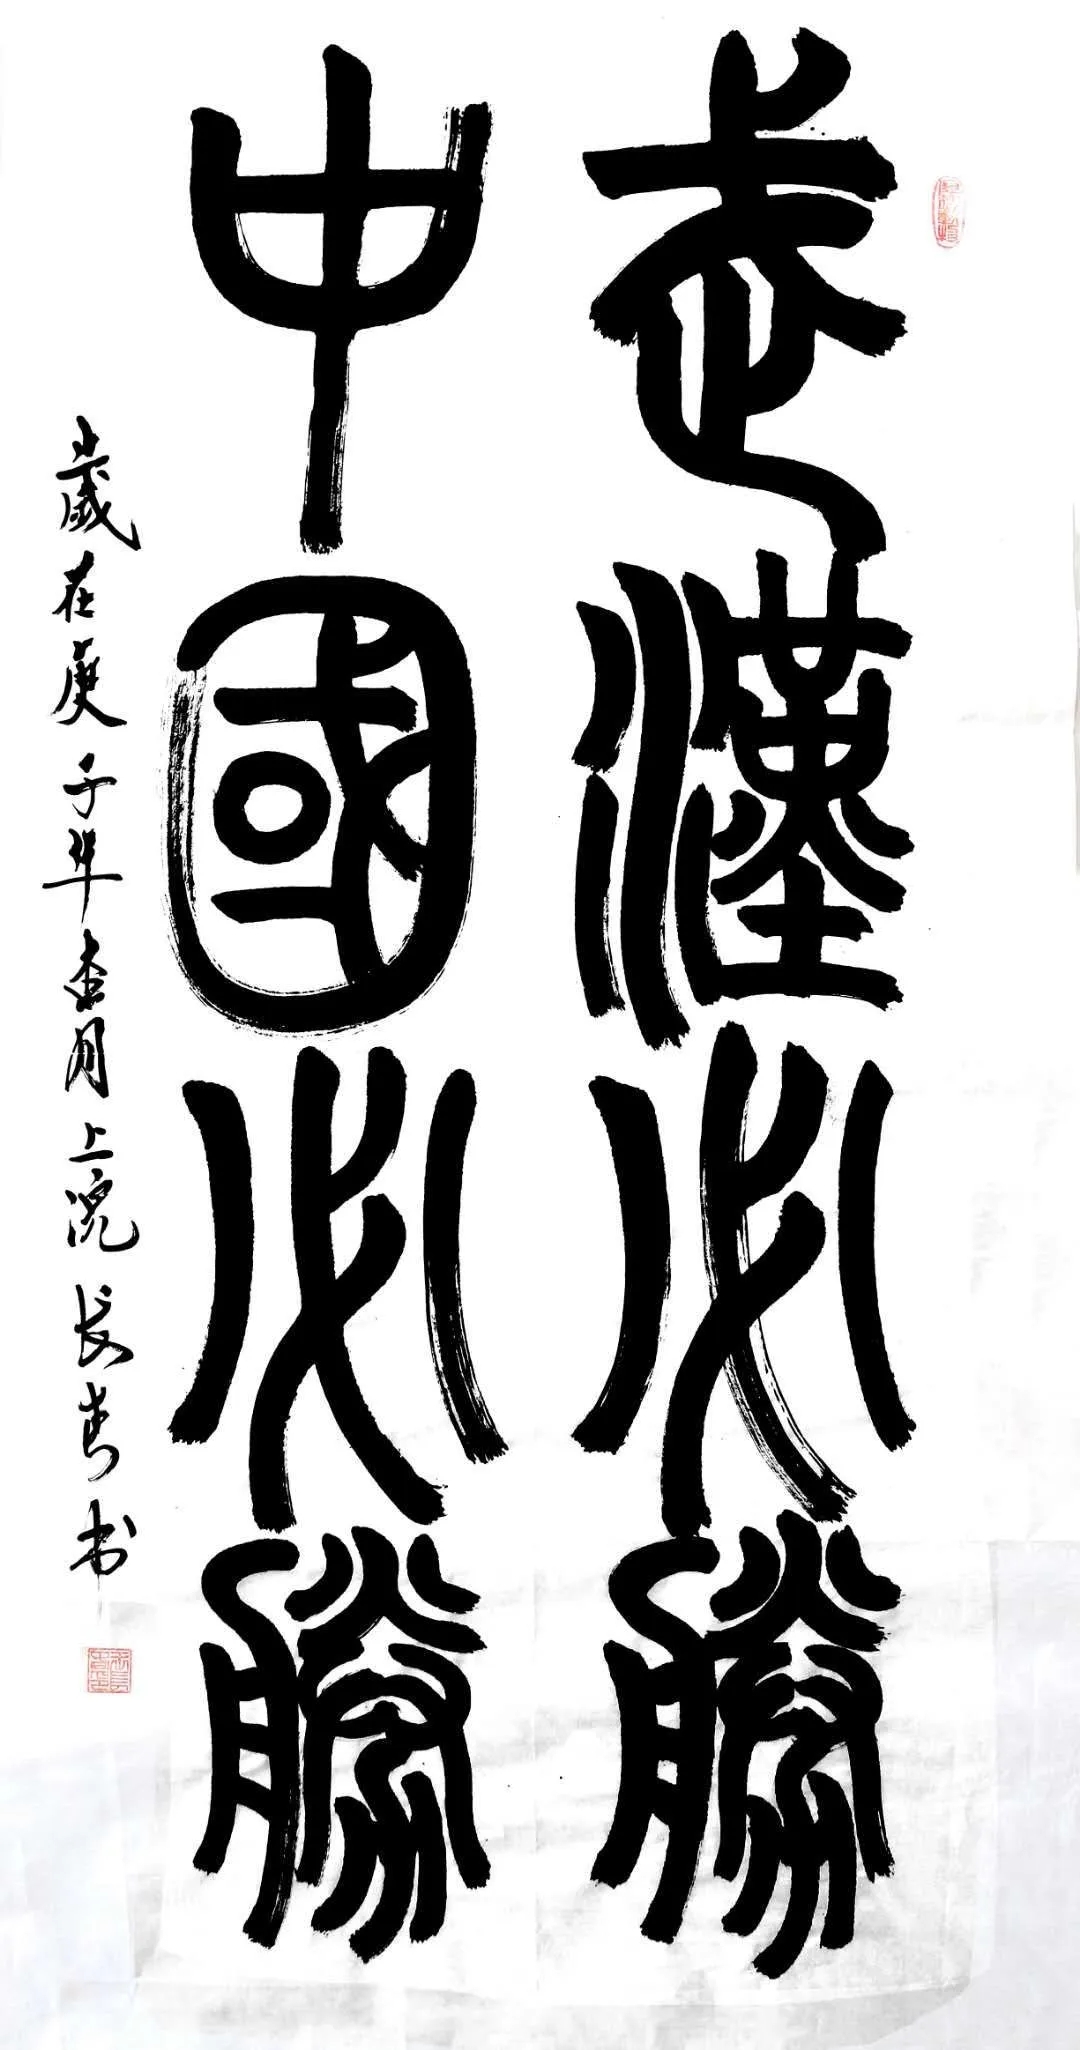 武漢必勝
中國必勝
歲在庚子年杏月上浣长青书